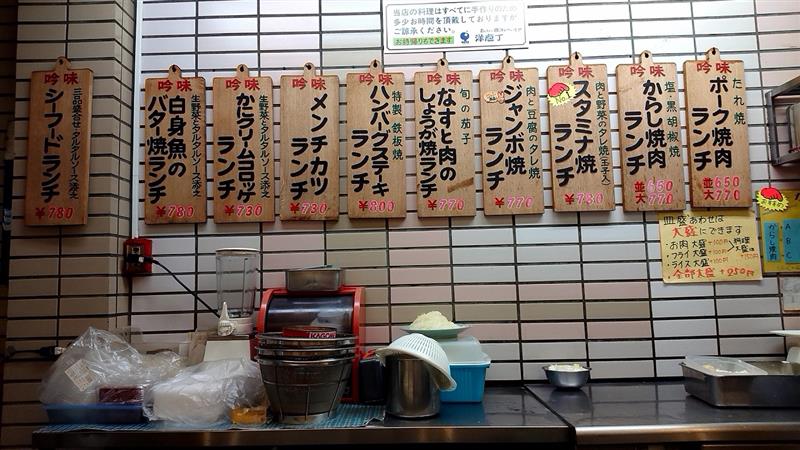 当店の料理はすべてに手作りのため
多少お時間を頂戴しておりますが
ご諒承ください。
お持帰りもできます
洋庖丁
吟味
ポーク焼肉ランチ
たれ焼
並650
大770
吟味
からし焼肉ランチ
塩・黒胡椒焼
並660
大770
吟味
スタミナ焼ランチ
肉と野菜のタレ焼(玉子入)
No.1
￥780
吟味
ジャンボ焼ランチ
肉と豆腐のタレ焼
￥770
吟味
なすと肉の
しょうが焼ランチ
旬の茄子
￥770
吟味
ハンバーグステーキ
ランチ
特製・鉄板焼
￥800
吟味
メンチカツ
ランチ
￥730
吟味
かにクリームコロッケ
ランチ
生野菜とタルタルソース添え
￥730
吟味
白身魚の
バター焼ランチ
生野菜とタルタルソース添え
￥780
吟味
シーフードランチ
三品盛合せ・タルタルソース添え
￥780
皿盛あわせは
大盛にできます
・お肉大盛+100円
・フライ大盛+100円
・ライス大盛+100円
料理大盛
+150円
全部大盛+250円
からし焼肉
A
B
C
KAGOME